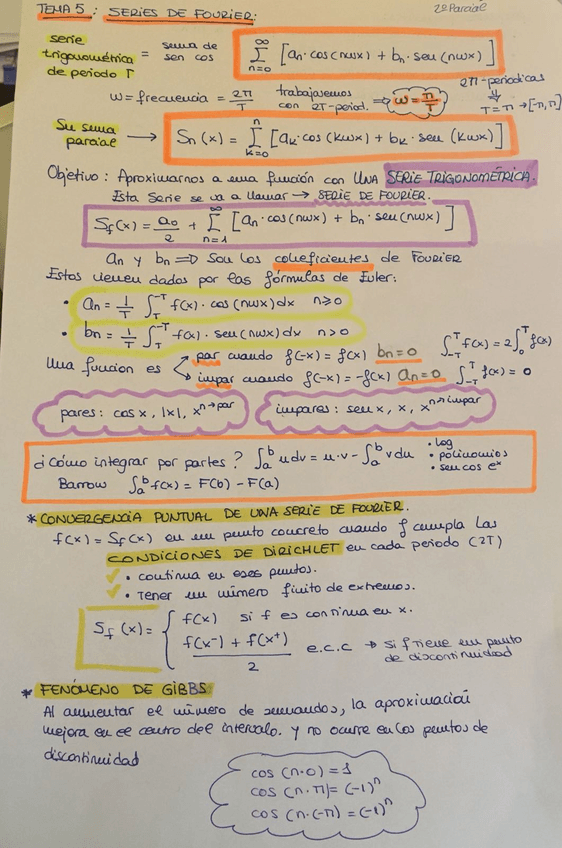 TEMA 5: SERIES DE FOURIER. 2º Parcial
serie trigonométrica de periodo T = suma de sen cos ∑_{n=0}^{∞} [an·cos(nωx) + bn·sen(nωx)]
ω = frecuencia = 2π/T trabajaremos con 2T-period. ⇒ ω = π/T 2π-periodicas ⇓ T = π → [-π, π]
Su suma parcial → Sn(x) = ∑_{k=0}^{n} [ak·cos(kωx) + bk·sen(kωx)]
Objetivo: Aproximarnos a una función con UNA SERIE TRIGONOMÉTRICA.
Esta Serie se va a llamar → SERIE DE FOURIER.
Sf(x) = a0/2 + ∑_{n=1}^{∞} [an·cos(nωx) + bn·sen(nωx)]
an y bn ⇒ Son los coeficientes de FOURIER
Estos vienen dados por las fórmulas de Euler:
• an = 1/T ∫_{T}^{-T} f(x)·cos(nωx)dx n≥0
• bn = 1/T ∫_{T}^{-T} f(x)·sen(nωx)dx n>0
Una funcion es par cuando f(-x) = f(x) bn=0 ∫_{-T}^{T} f(x) = 2∫_{0}^{T} f(x)
impar cuando f(-x) = -f(x) an=0 ∫_{-T}^{T} f(x) = 0
pares: cos x, |x|, x^{n→par} impares: sen x, x, x^{n→impar}
¿Cómo integrar por partes? ∫_{a}^{b} u dv = u·v - ∫_{a}^{b} v du • log
• polinomios
• sen cos e^x
Barrow ∫_{a}^{b} f(x) = F(b) - F(a)
* CONVERGENCIA PUNTUAL DE UNA SERIE DE FOURIER.
f(x) = Sf(x) en un punto concreto cuando f cumpla las
CONDICIONES DE DIRICHLET en cada periodo (2T)
✓ • continua en esos puntos.
✓ • Tener un número finito de extremos.
Sf(x) = { f(x) si f es continua en x.
(f(x⁻) + f(x⁺))/2 e.c.c → si f tiene un punto de discontinuidad
* FENÓMENO DE GIBBS:
Al aumentar el número de sumandos, la aproximación
mejora en el centro del intervalo. y no ocurre en los puntos de
discontinuidad
cos (n·0) = 1
cos (n·π) = (-1)^n
cos (n·(-π)) = (-1)^n